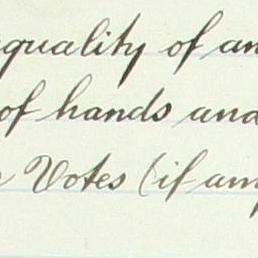 equality of an
of hands and
Votes (if any